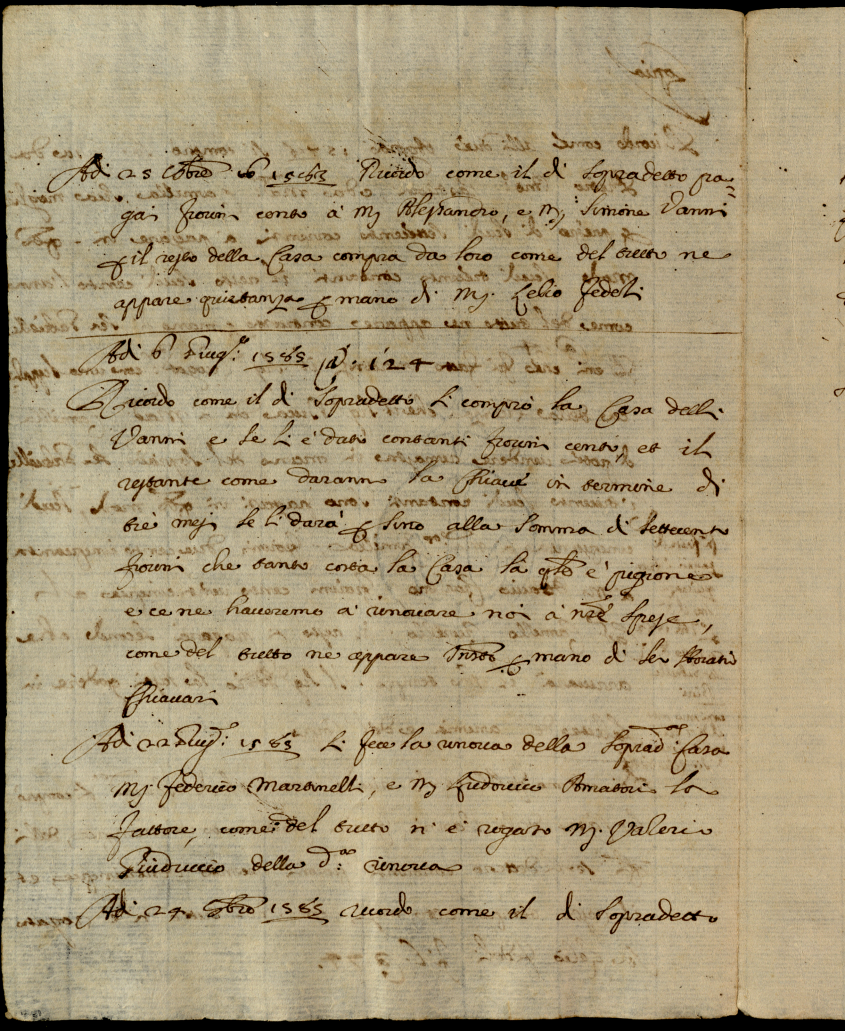 Adi 25 1563 Ricordo come il di sopradetto pa=
gai fiorini cento à Mr. Alessandro, e Mr. Simone Vanni
il resto della Casa compra da loro come del tutto ne
appare quietanza mano di Mr. Lelio Fedeli
Adi 6 Giug.o 1565 124
Ricordo come il di sopradetto si comprò la Casa delli
Vanni e se li è dato contanti fiorini cento, et il
restante come daranno la Chiave in termine di
trè mesi se li darà sino alla somma di settecento
fiorini che tanto costa la Casa la qle è pigione
e ce ne haveremo à rinovare noi à nre spese,
come del tutto ne appare mano di Ser Horatio
Chiavari
Adi 22 1563 si fece la della soprad.a Casa
Mr. Federico Martinelli, e Mr. Ludovico Amatori la
fattore, come del tutto n'è rogato Mr. Valerio
della d.a
Adi 24 1565 ricordo come il di sopradetto